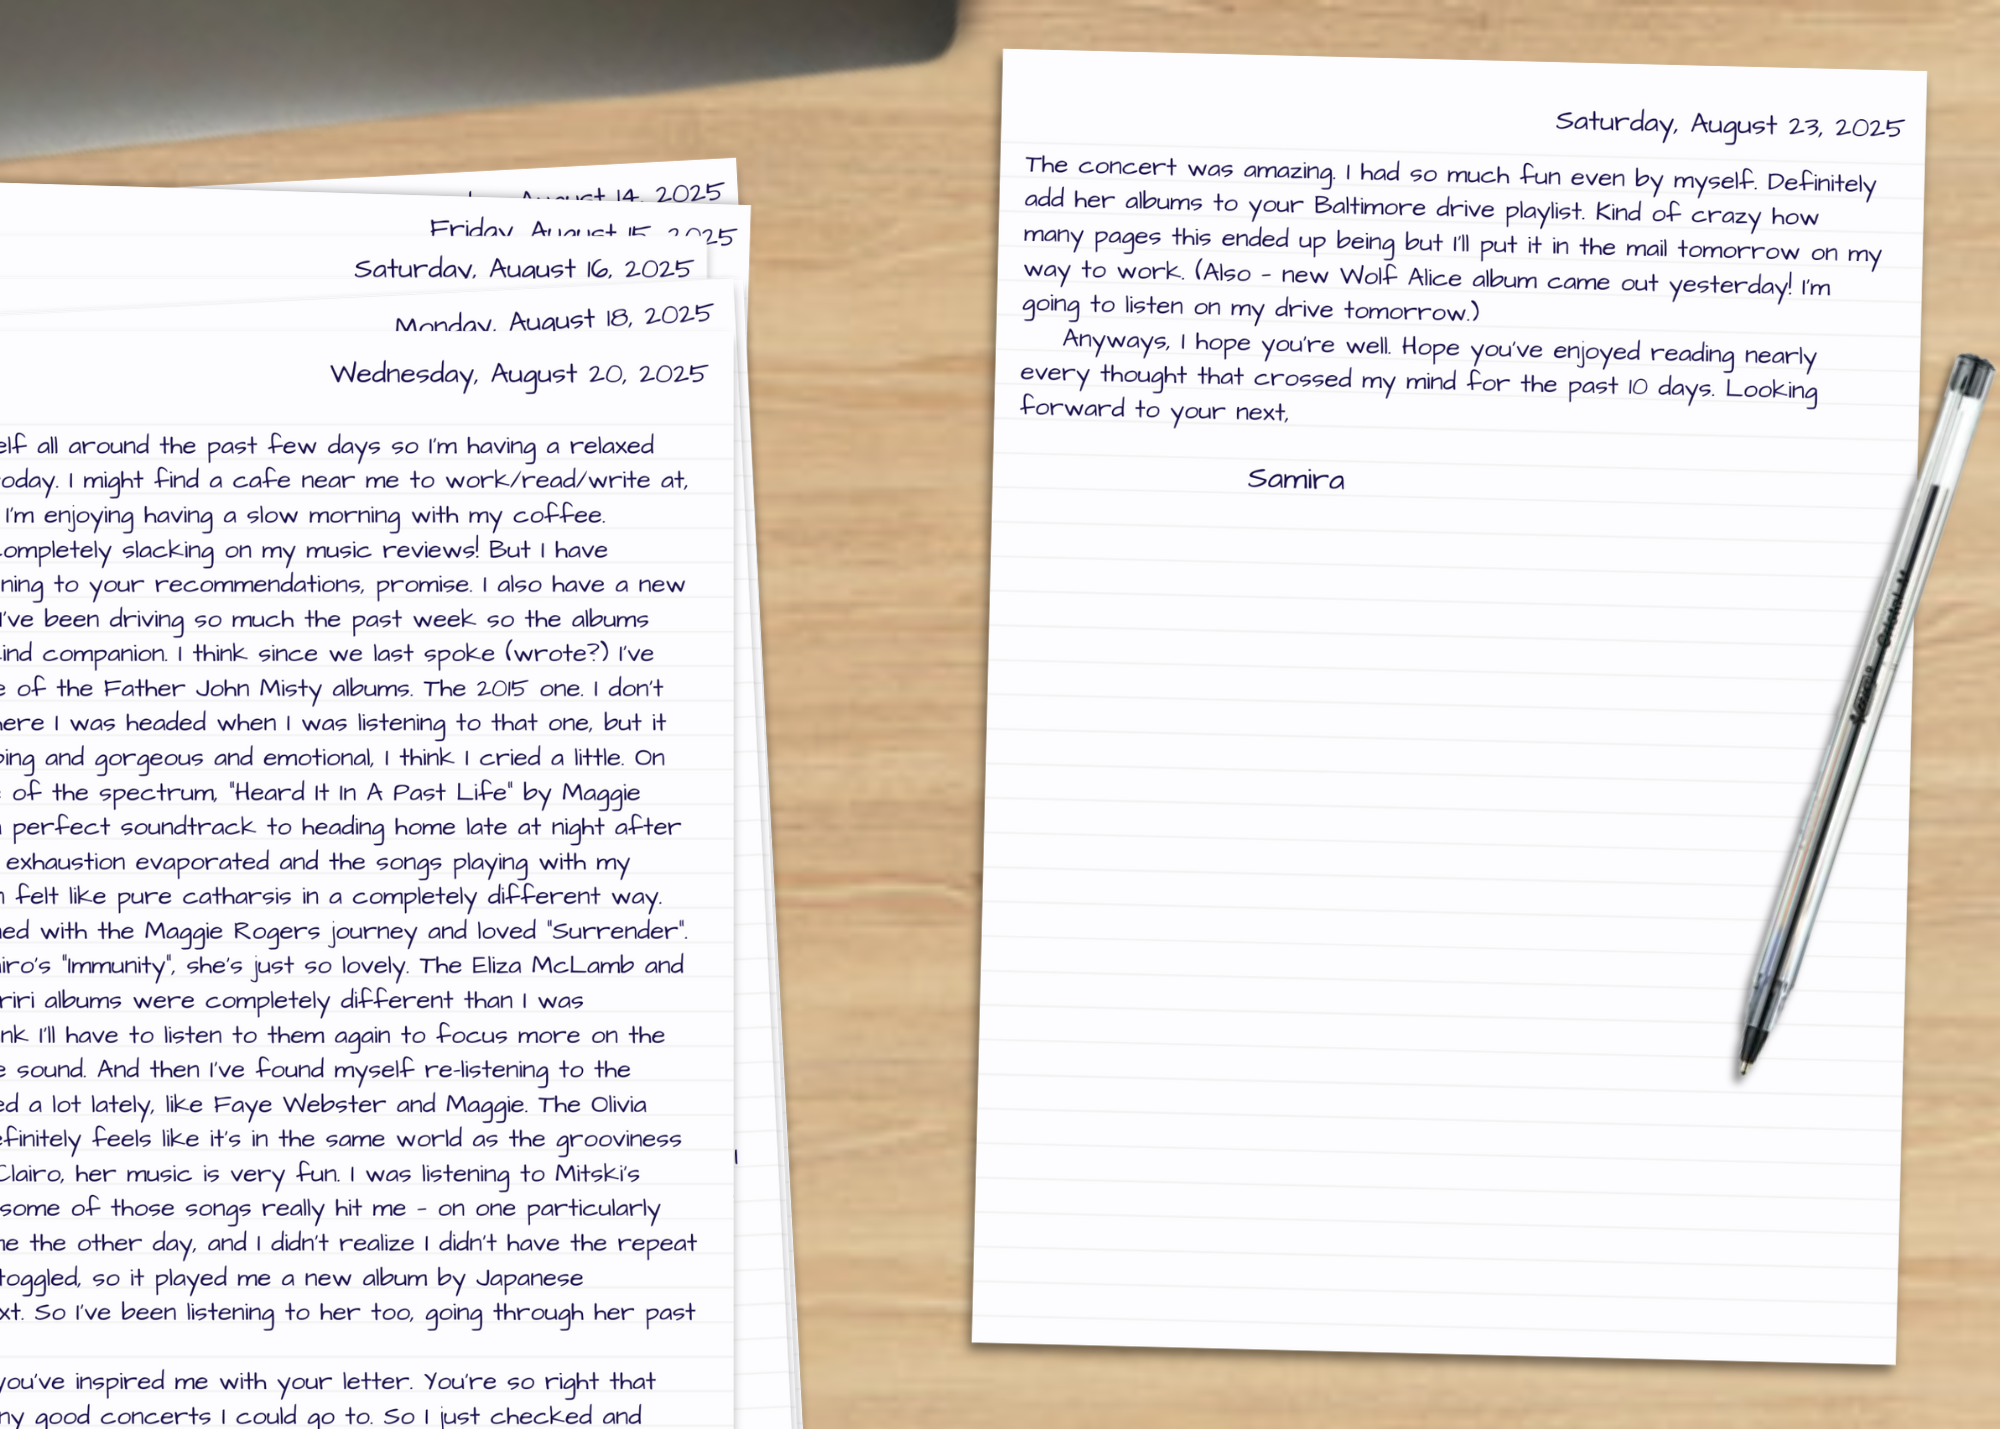 August 14, 2025
Friday, August 15, 2025
Saturday, August 16, 2025
Monday, August 18, 2025
Wednesday, August 20, 2025
all around the past few days so I'm having a relaxed
I might find a cafe near me to work/read/write at,
I'm enjoying having a slow morning with my coffee.
completely slacking on my music reviews! But I have
to your recommendations, promise. I also have a new
I've been driving so much the past week so the albums
companion. I think since we last spoke (wrote?) I've
of the Father John Misty albums. The 2015 one. I don't
I was headed when I was listening to that one, but it
and gorgeous and emotional, I think I cried a little. On
of the spectrum, "Heard It In A Past Life" by Maggie
perfect soundtrack to heading home late at night after
exhaustion evaporated and the songs playing with my
felt like pure catharsis in a completely different way.
with the Maggie Rogers journey and loved "Surrender".
"Immunity", she's just so lovely. The Eliza McLamb and
albums were completely different than I was
I'll have to listen to them again to focus more on the
sound. And then I've found myself re-listening to the
a lot lately, like Faye Webster and Maggie. The Olivia
definitely feels like it's in the same world as the grooviness
Clairo, her music is very fun. I was listening to Mitski's
some of those songs really hit me - on one particularly
the other day, and I didn't realize I didn't have the repeat
toggled, so it played me a new album by Japanese
So I've been listening to her too, going through her past
you've inspired me with your letter. You're so right that
good concerts I could go to. So I just checked and
Saturday, August 23, 2025
The concert was amazing. I had so much fun even by myself. Definitely
add her albums to your Baltimore drive playlist. Kind of crazy how
many pages this ended up being but I'll put it in the mail tomorrow on my
way to work. (Also - new Wolf Alice album came out yesterday! I'm
going to listen on my drive tomorrow.)
Anyways, I hope you're well. Hope you've enjoyed reading nearly
every thought that crossed my mind for the past 10 days. Looking
forward to your next,
Samira